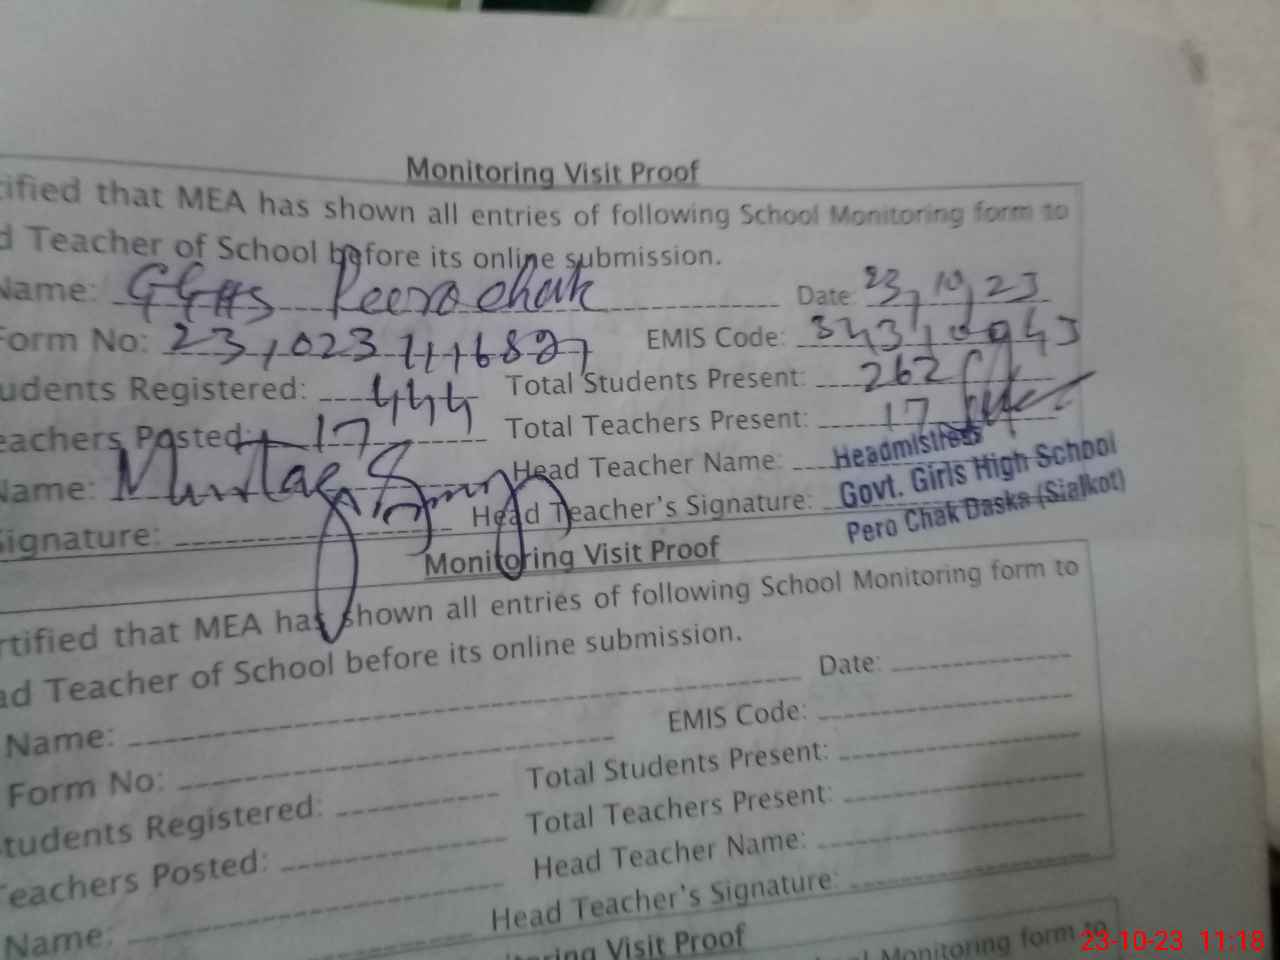 Monitoring Visit Proof
tified that MEA has shown all entries of following School Monitoring form to
d Teacher of School before its online submission.
Name: GGHS Peero chak Date: 23,10,23
Form No: EMIS Code:
udents Registered: 444 Total Students Present: 262
eachers Posted: 17 Total Teachers Present: 17
Name: Head Teacher Name: Headmistress
Signature: Head Teacher's Signature: Govt. Girls High School
Pero Chak Daska (Sialkot)
Monitoring Visit Proof
rtified that MEA has shown all entries of following School Monitoring form to
ad Teacher of School before its online submission.
Name: Date:
Form No: EMIS Code:
tudents Registered: Total Students Present:
Teachers Posted: Total Teachers Present:
Name: Head Teacher Name:
Head Teacher's Signature:
toring Visit Proof
l Monitoring form to
23-10-23 11:18